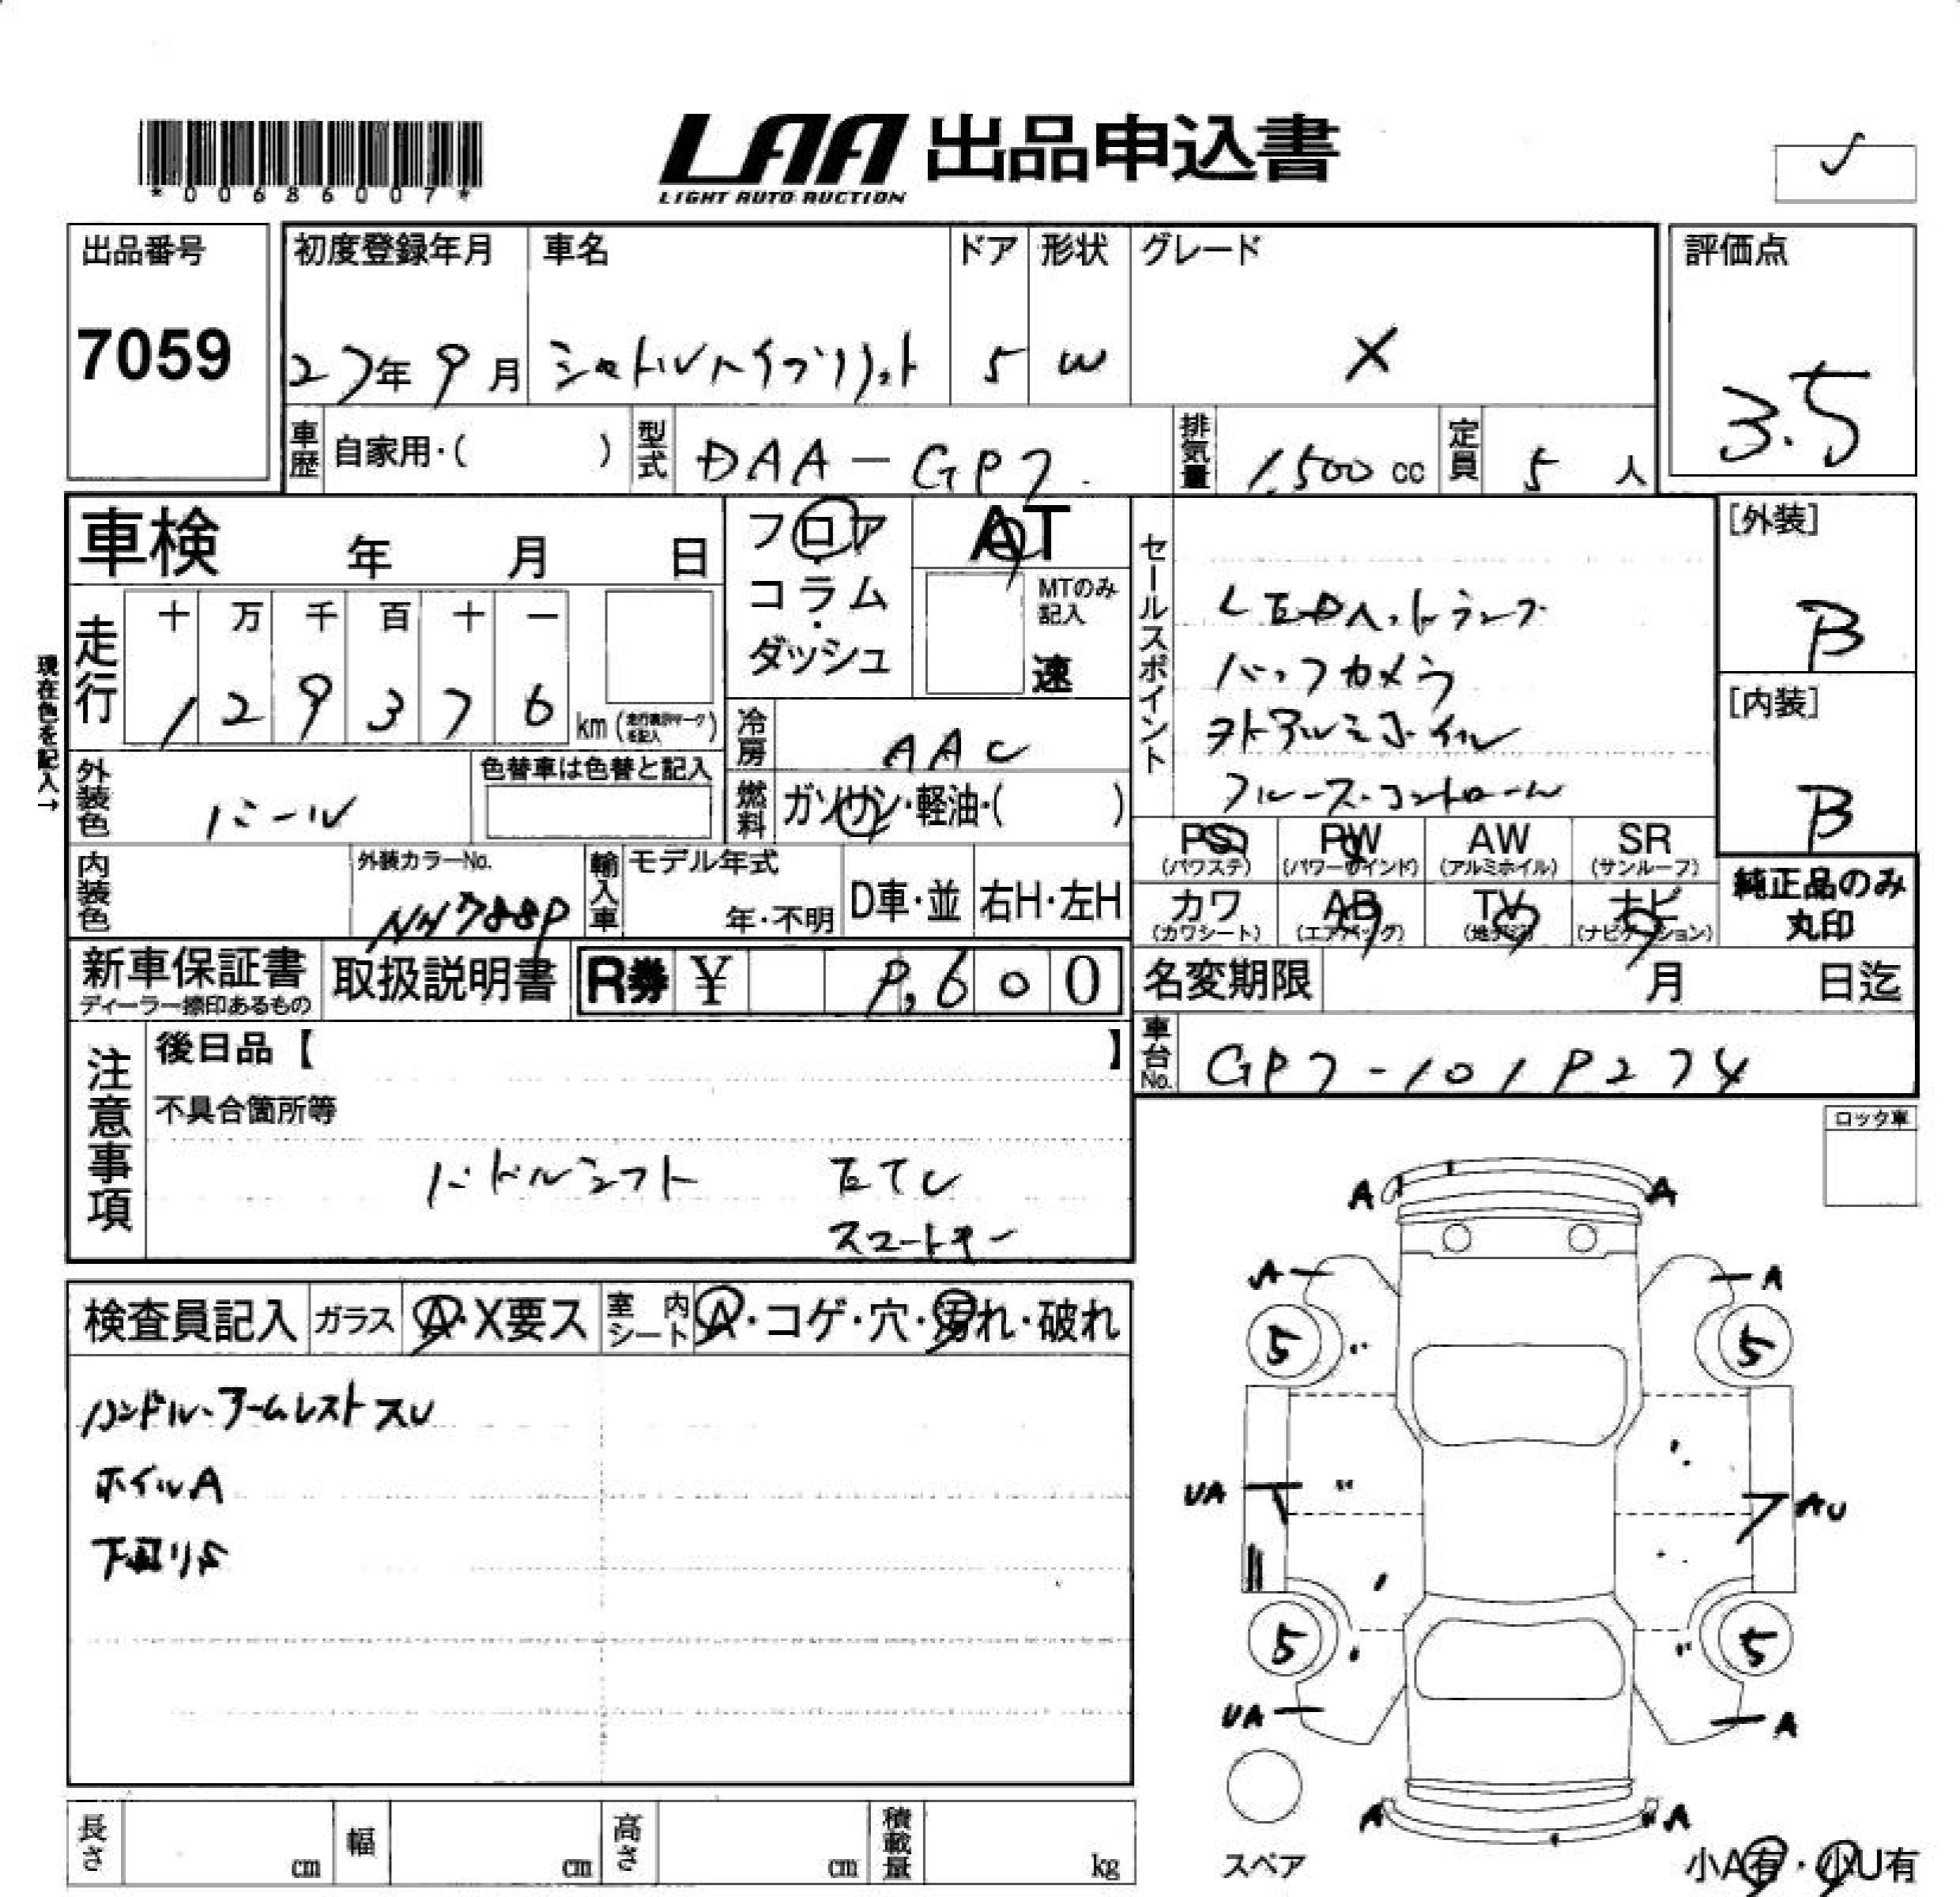 *00686007*
LAA 出品申込書
LIGHT AUTO AUCTION
出品番号
7059
初度登録年月
27年9月
車名
シャトルハイブリット
ドア
5
形状
W
グレード
X
評価点
3.5
車歴 自家用・( )
型式 DAA-GP7
排気量 1,500 cc
定員 5 人
車検 年 月 日
フロア・コラム・ダッシュ
AT
MTのみ記入
速
走行
十 万 千 百 十 一
1 2 9 3 7 6 km
現在色を記入→
冷房 AAC
燃料 ガソリン・軽油・( )
外装色 パール
色替車は色替と記入
内装色
外装カラーNo.
NH788P
輸入車 モデル年式
年・不明
D車・並
右H・左H
セールスポイント
LEDヘットランプ
バックカメラ
ヨトアルミホイル
クルーズコントロール
[外装]
B
[内装]
B
PS (パワステ)
PW (パワーウインド)
AW (アルミホイル)
SR (サンルーフ)
カワ (カワシート)
AB (エアバッグ)
TV (地デジ)
ナビ (ナビゲーション)
純正品のみ丸印
新車保証書
ディーラー捺印あるもの
取扱説明書
R券 ¥ 9,600
名変期限 月 日迄
車台No. GP7-1019274
注意事項
後日品【 】
不具合箇所等
パドルシフト ETC
スマートキー
ロック車
検査員記入 ガラス A・X要ス 室内シート A・コゲ・穴・汚れ・破れ
ハンドル、アームレストスレ
ホイルA
下回りS
A A
A A
5 5
UA AU
5 5
UA A
A A
スペア
小A有・小U有
長さ cm 幅 cm 高さ cm 積載量 kg